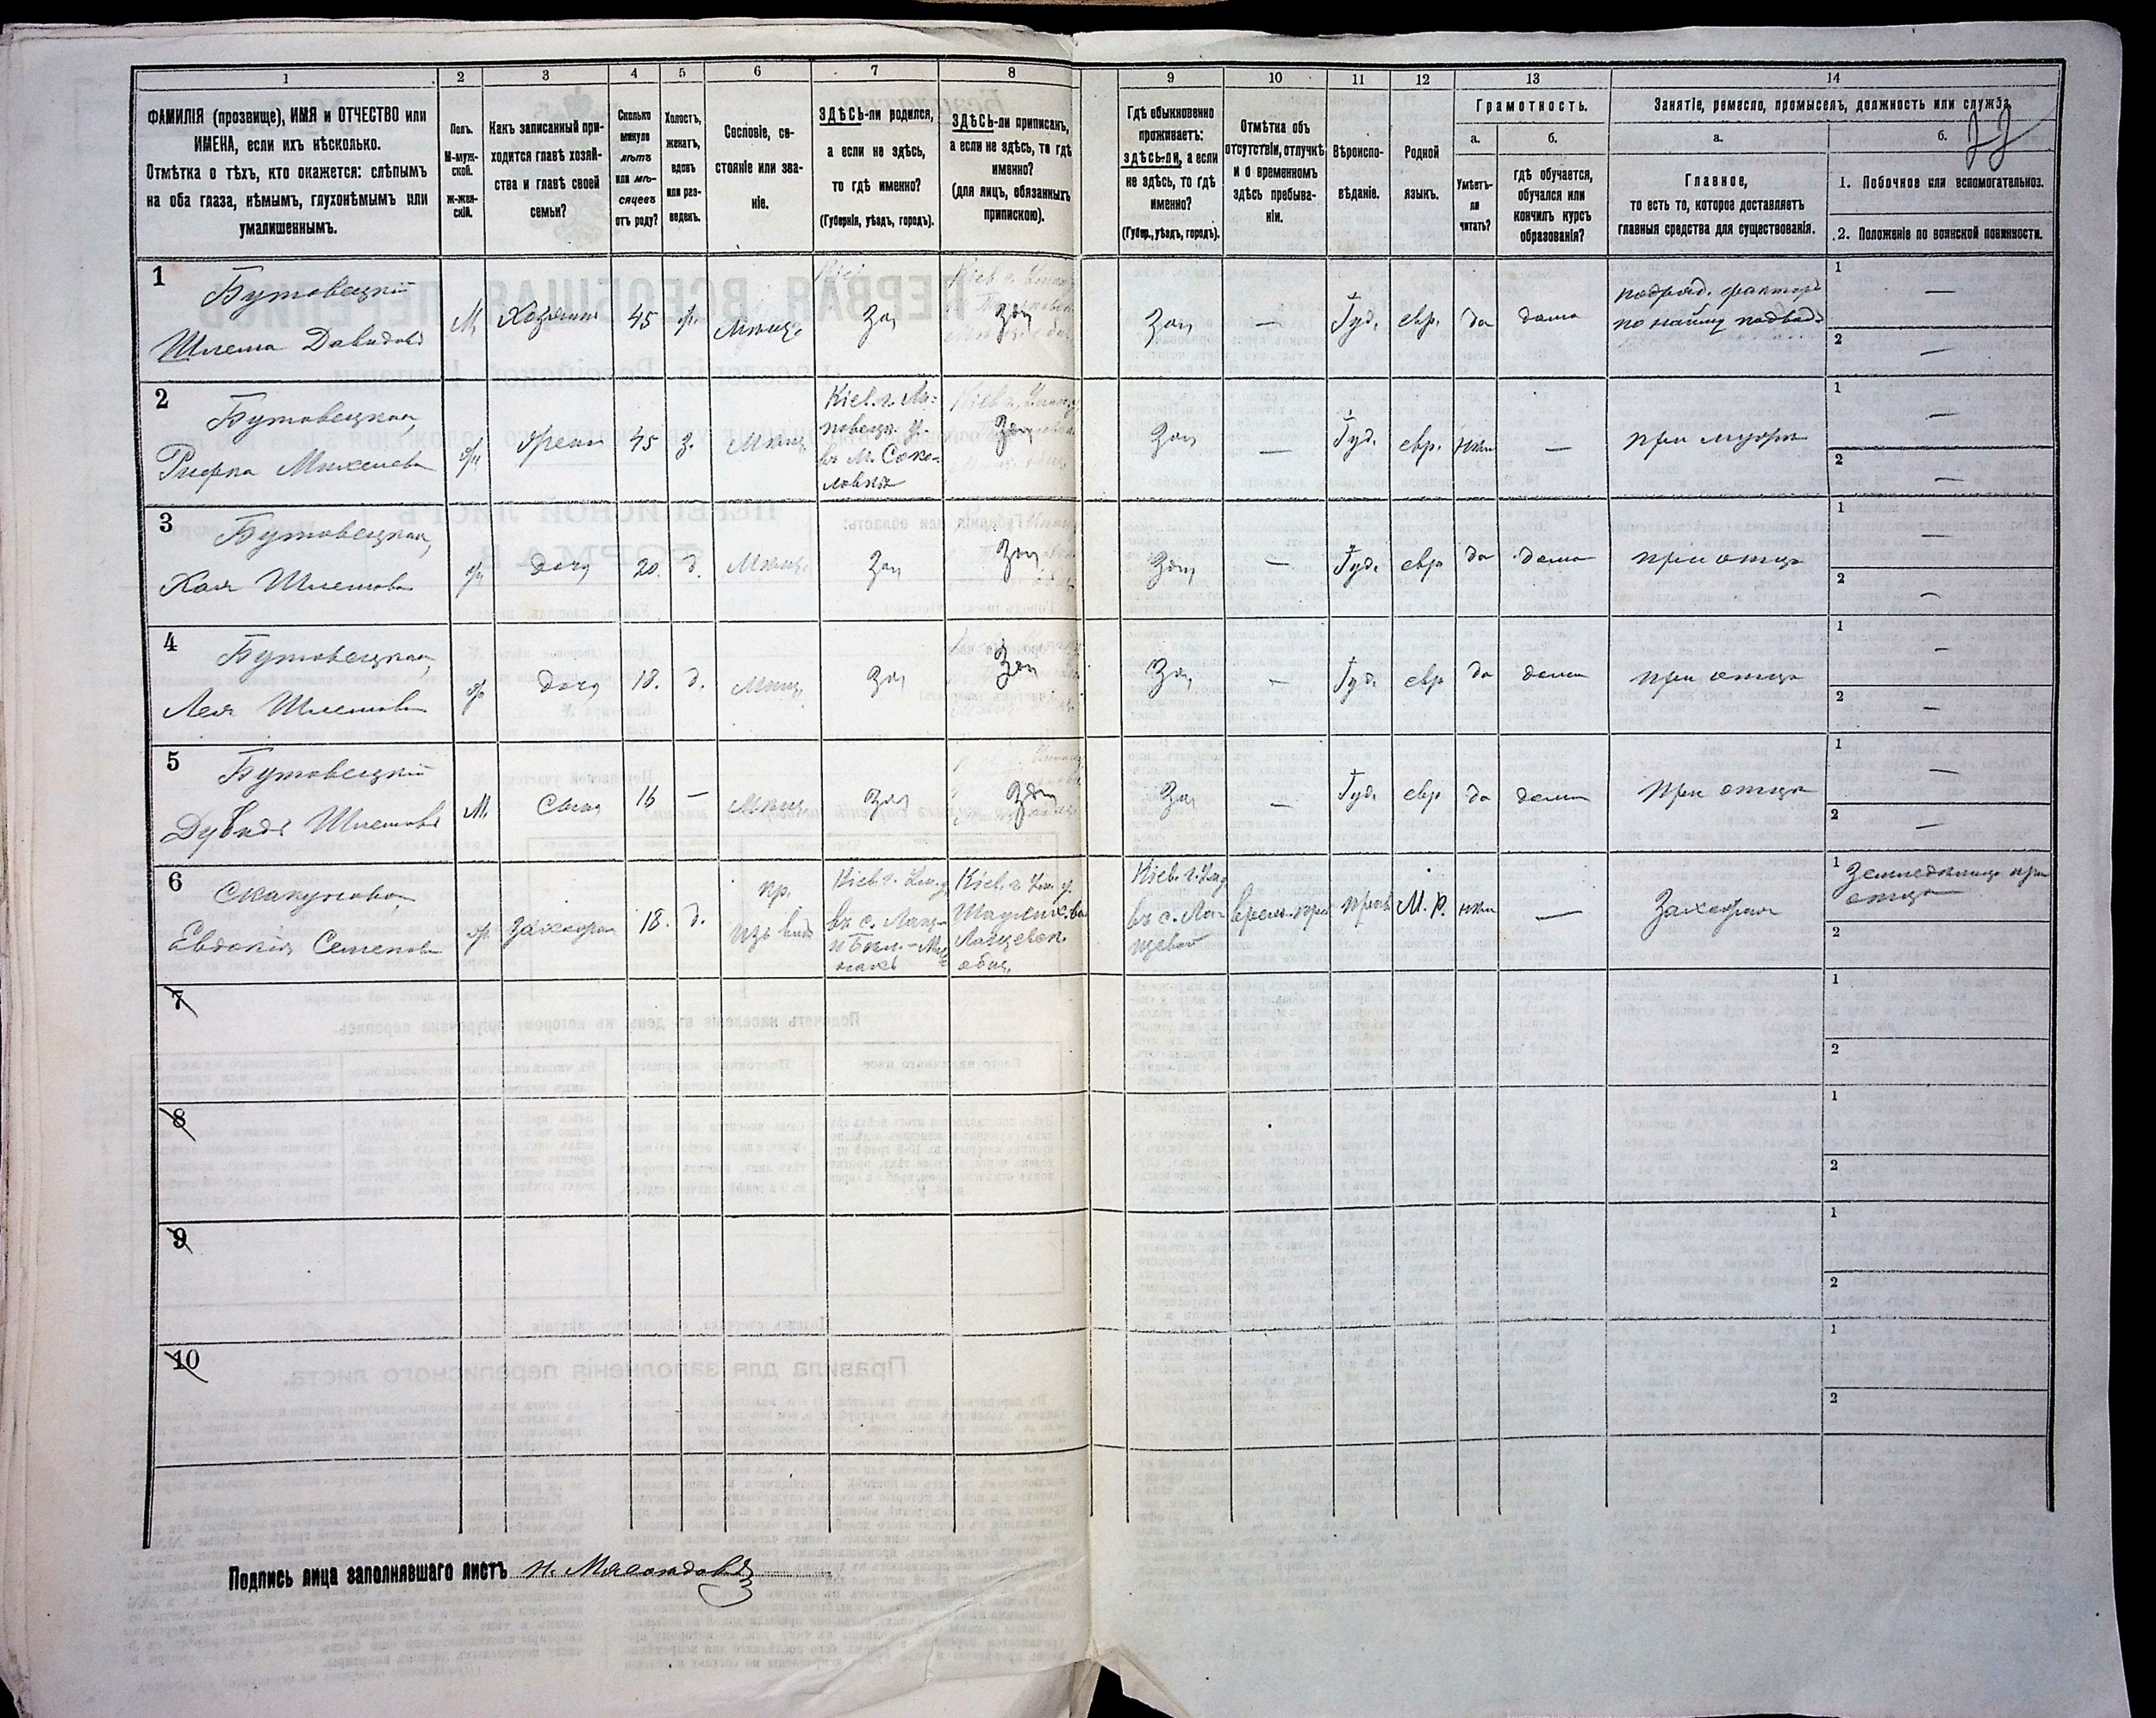 1 2 3 4 5 6 7 8 9 10 11 12 13 14
ФАМИЛІЯ (прозвище), ИМЯ и ОТЧЕСТВО или
ИМЕНА, если ихъ нѣсколько.
Отмѣтка о тѣхъ, кто окажется: слѣпымъ
на оба глаза, нѣмымъ, глухонѣмымъ или
умалишеннымъ.
Полъ.
М-муж-
ской.
ж-жен-
скій.
Какъ записанный при-
ходится главѣ хозяй-
ства и главѣ своей
семьи?
Сколько
минуло
лѣтъ
или мѣ-
сяцевъ
отъ роду?
Холостъ,
женатъ,
вдовъ
или раз-
веденъ.
Сословіе, со-
стояніе или зва-
ніе.
ЗДѢСЬ-ли родился,
а если не здѣсь,
то гдѣ именно?
(Губернія, уѣздъ, городъ).
ЗДѢСЬ-ли приписанъ,
а если не здѣсь, то гдѣ
именно?
(для лицъ, обязанныхъ
припискою).
Гдѣ обыкновенно
проживаетъ:
здѣсь-ли, а если
не здѣсь, то гдѣ
именно?
(Губер., уѣздъ, городъ).
Отмѣтка объ
отсутствіи, отлучкѣ
и о временномъ
здѣсь пребыва-
ніи.
Вѣроиспо-
вѣданіе.
Родной
языкъ.
Грамотность.
а.
Умѣетъ-
ли
читать?
б.
гдѣ обучается,
обучался или
кончилъ курсъ
образованія?
Занятіе, ремесло, промыселъ, должность или служба.
а.
Главное,
то есть то, которое доставляетъ
главныя средства для существованія.
б.
1. Побочное или вспомогательное.
2. Положеніе по воинской повинности.
1
Бутовецкій
Шлема Давидовъ
М. Хозяинъ 45 ж. Мѣщ. Зд. Зд. Зд. — Іуд. евр. да дома
подряд. факторъ
по найму подводъ
1 —
2 —
2
Бутовецкая,
Рифка Михелева
ж жена 45 з. Мѣщ.
Кіев. г. Ли-
повецк. у.
въ м. Соко-
ловкѣ
Зд. Зд. — Іуд. евр. нѣтъ — при мужѣ
1 —
2 —
3
Бутовецкая,
Хая Шлемова
ж дочь 20. д. Мѣщ. Зд. Зд. Зд. — Іуд. евр да дома при отцѣ
1 —
2 —
4
Бутовецкая,
Лея Шлемова
ж дочь 18. д. Мѣщ. Зд. Зд. Зд. — Іуд. евр да дома при отцѣ
1 —
2 —
5
Бутовецкій
Дувидъ Шлемовъ
М. Сынъ 16 — Мѣщ. Зд. Зд. Зд. — Іуд. евр да дома при отцѣ
1 —
2 —
6
Скакунова,
Евдокія Семенова
ж 18. д.
Кіев. г. Ум. у.
въ с.
Кіев. г. Ум. у.
общ.
Кіев. г. Ум. у
въ с.
врем. преб прав М. Р. нѣтъ —
1 Земледѣліе при
отцѣ
2
7
1
2
8
1
2
9
1
2
10
1
2
Подпись лица заполнявшаго листъ Н. Мясоѣдовъ